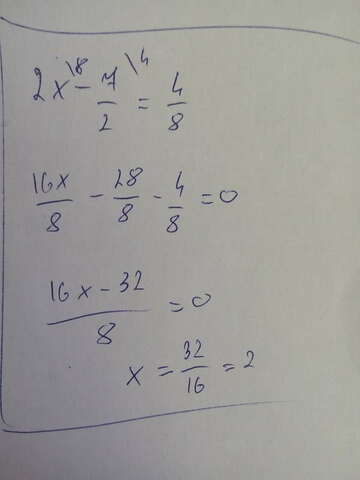 2x\8 - 7/2\4 = 4/8
16x/8 - 28/8 - 4/8 = 0
16x - 32/8 = 0
x = 32/16 = 2